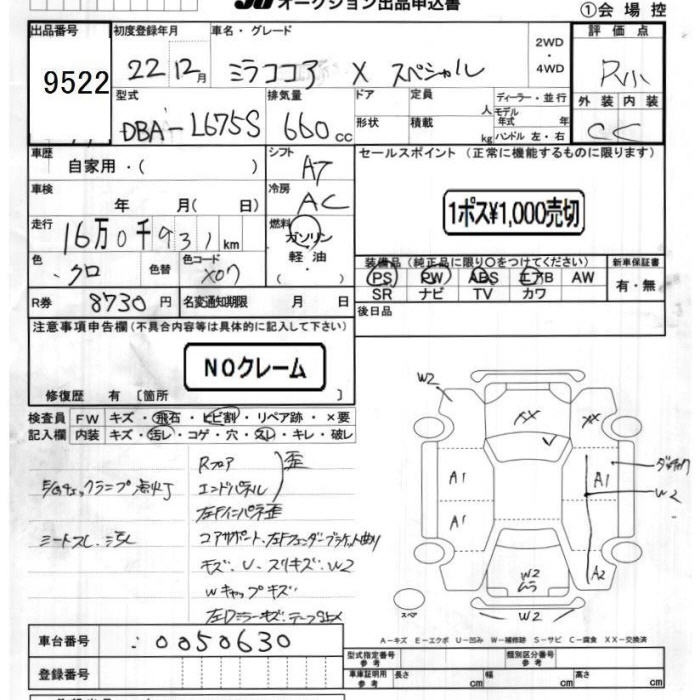 オークション出品申込書
①会場控
出品番号 初度登録年月 車名・グレード 評価点
9522 22 12月 ミラココア X スペシャル 2WD・4WD R小
型式 排気量 ドア 定員 人 ディーラー・並行 外装 内装
DBA-L675S 660cc 形状 積載 kg モデル年式 年 ハンドル 左・右 C C
車歴 自家用・( ) シフト AT セールスポイント (正常に機能するものに限ります)
車検 年 月( 日) 冷房 AC
1ポス¥1,000売切
走行 16万0千931km 燃料 ガソリン・軽油・( )
装備品(純正品に限り○をつけてください) 新車保証書
色 クロ 色替 色コード X07 PS PW ABS エアB AW 有・無
R券 8730円 名変通知期限 月 日 SR ナビ TV カワ
注意事項申告欄(不具合内容等は具体的に記入して下さい) 後日品
NOクレーム
修復歴 有 〔箇所 〕
検査員 FW キズ・飛石・ヒビ割・リペア跡・×要
記入欄 内装 キズ・汚レ・コゲ・穴・スレ・キレ・破レ
Rフロア 歪
エンジンチェックランプ点灯 エンドパネル
左Fインパネ歪
シートスレ、汚レ コアサポート、左Fフェンダーブラケット曲り
キズ、U、スリキズ、W2
Wキャップキズ
左ドアミラーキズ、テープ止メ
W2 XX XX
A1 A1
A1 W2
W2 ムラ A2
W2
スペア
A-キズ E-エクボ U-凹み W-補修跡 S-サビ C-腐食 XX-交換済
車台番号 0050630
型式指定番号 参考 類別区分番号 参考
登録番号 車庫証明用 参考 長さ cm 幅 cm 高さ cm